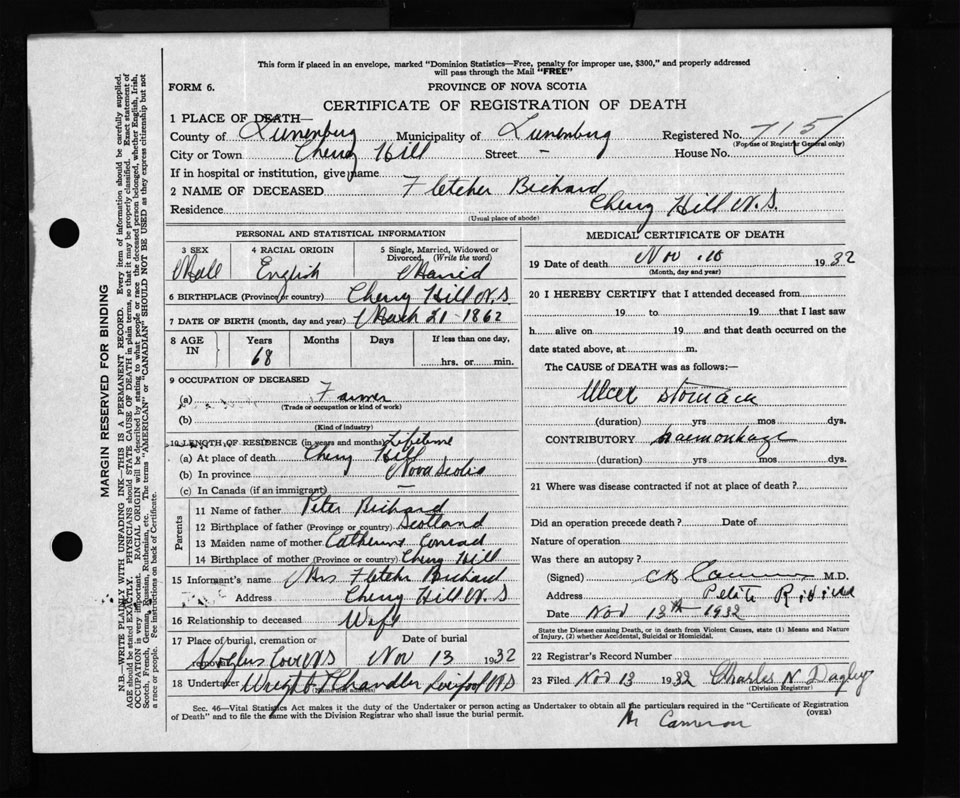 This form if placed in an envelope, marked "Dominion Statistics—Free, penalty for improper use, $300," and properly addressed
will pass through the Mail "FREE"
FORM 6. PROVINCE OF NOVA SCOTIA
CERTIFICATE OF REGISTRATION OF DEATH
1 PLACE OF DEATH—
County of Lunenburg Municipality of Lunenburg Registered No. 715
(For use of Registrar General only)
City or Town Cherry Hill Street - House No.
If in hospital or institution, give name
2 NAME OF DECEASED Fletcher Bichard
Residence Cherry Hill N.S.
(Usual place of abode)
PERSONAL AND STATISTICAL INFORMATION
3 SEX 4 RACIAL ORIGIN 5 Single, Married, Widowed or
Divorced, (Write the word)
Male English Married
6 BIRTHPLACE (Province or country) Cherry Hill N.S
7 DATE OF BIRTH (month, day and year) March 21-1862
8 AGE IN Years Months Days If less than one day,
68 hrs. or min.
9 OCCUPATION OF DECEASED
(a) Farmer
(Trade or occupation or kind of work)
(b)
(Kind of industry)
10 LENGTH OF RESIDENCE (in years and months) Lifetime
(a) At place of death Cherry Hill
(b) In province Nova Scotia
(c) In Canada (if an immigrant) —
Parents
11 Name of father Peter Bichard
12 Birthplace of father (Province or country) Scotland
13 Maiden name of mother Catherine Conrad
14 Birthplace of mother (Province or country) Cherry Hill
15 Informant's name Mrs Fletcher Bichard
Address Cherry Hill N.S
16 Relationship to deceased Wife
17 Place of burial, cremation or removal Date of burial
Voglers Cove N.S Nov 13 1932
18 Undertaker Wright & Chandler Liverpool N.S
(Name and address)
MEDICAL CERTIFICATE OF DEATH
19 Date of death Nov. 10 1932
(Month, day and year)
20 I HEREBY CERTIFY that I attended deceased from
19 to 19 that I last saw
h alive on 19 and that death occurred on the
date stated above, at m.
The CAUSE of DEATH was as follows:—
Ulcer stomach
(duration) yrs mos dys.
CONTRIBUTORY haemorrhage
(duration) yrs mos dys.
21 Where was disease contracted if not at place of death?
Did an operation precede death? Date of
Nature of operation
Was there an autopsy?
(Signed) Cameron M.D.
Address Petite Riviere
Date Nov 13th 1932
State the Disease causing Death, or in death from Violent Causes, state (1) Means and Nature
of Injury, (2) whether Accidental, Suicidal or Homicidal.
22 Registrar's Record Number
23 Filed Nov 13 1932 Charles N Dagley
(Division Registrar)
Sec. 46—Vital Statistics Act makes it the duty of the Undertaker or person acting as Undertaker to obtain all the particulars required in the "Certificate of Registration
of Death" and to file the same with the Division Registrar who shall issue the burial permit. (OVER)
Dr Cameron
MARGIN RESERVED FOR BINDING
N.B.—WRITE PLAINLY WITH UNFADING INK—THIS IS A PERMANENT RECORD. Every item of information should be carefully supplied.
AGE should be stated EXACTLY. PHYSICIANS should STATE CAUSE OF DEATH in plain terms, so that it may be properly classified. Exact statement of
OCCUPATION is very important. RACIAL ORIGIN will be described by stating to what people or race the deceased person belonged, whether English, Irish,
Scotch, French, German, Russian, Ruthenian, etc. The terms "AMERICAN" or "CANADIAN" SHOULD NOT BE USED as they express citizenship but not
a race or people. See instructions on back of Certificate.